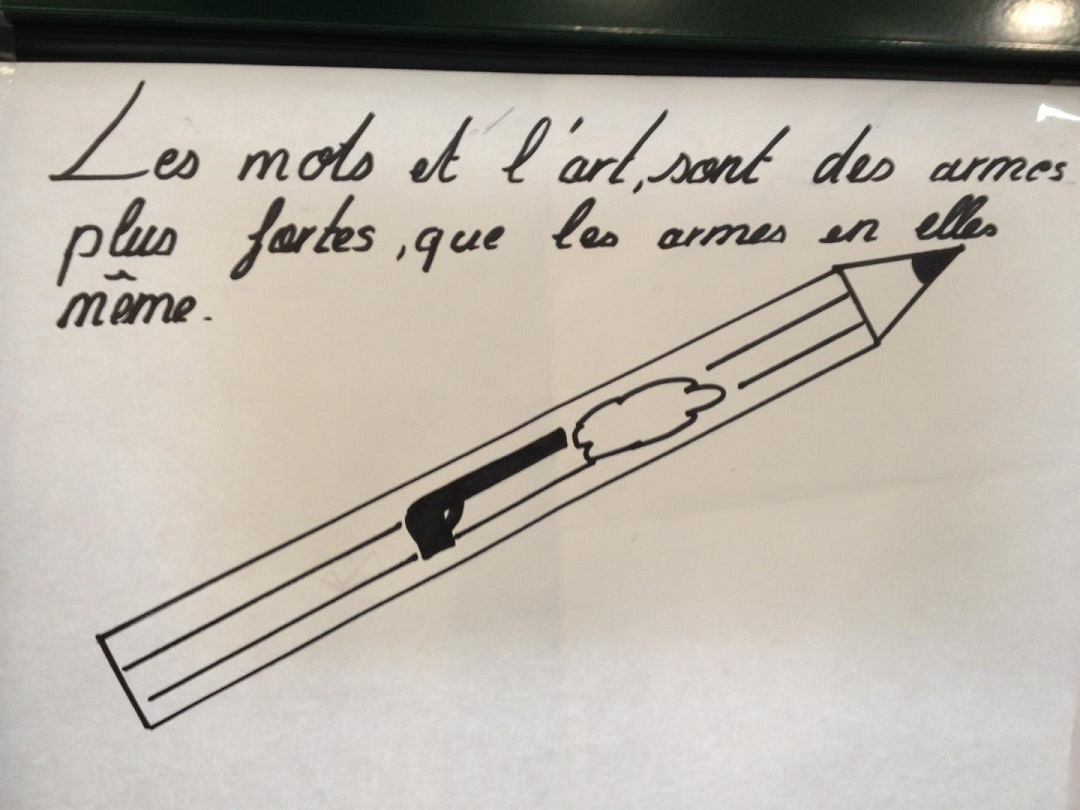 Les mots et l'art, sont des armes
plus fortes, que les armes en elles
même.